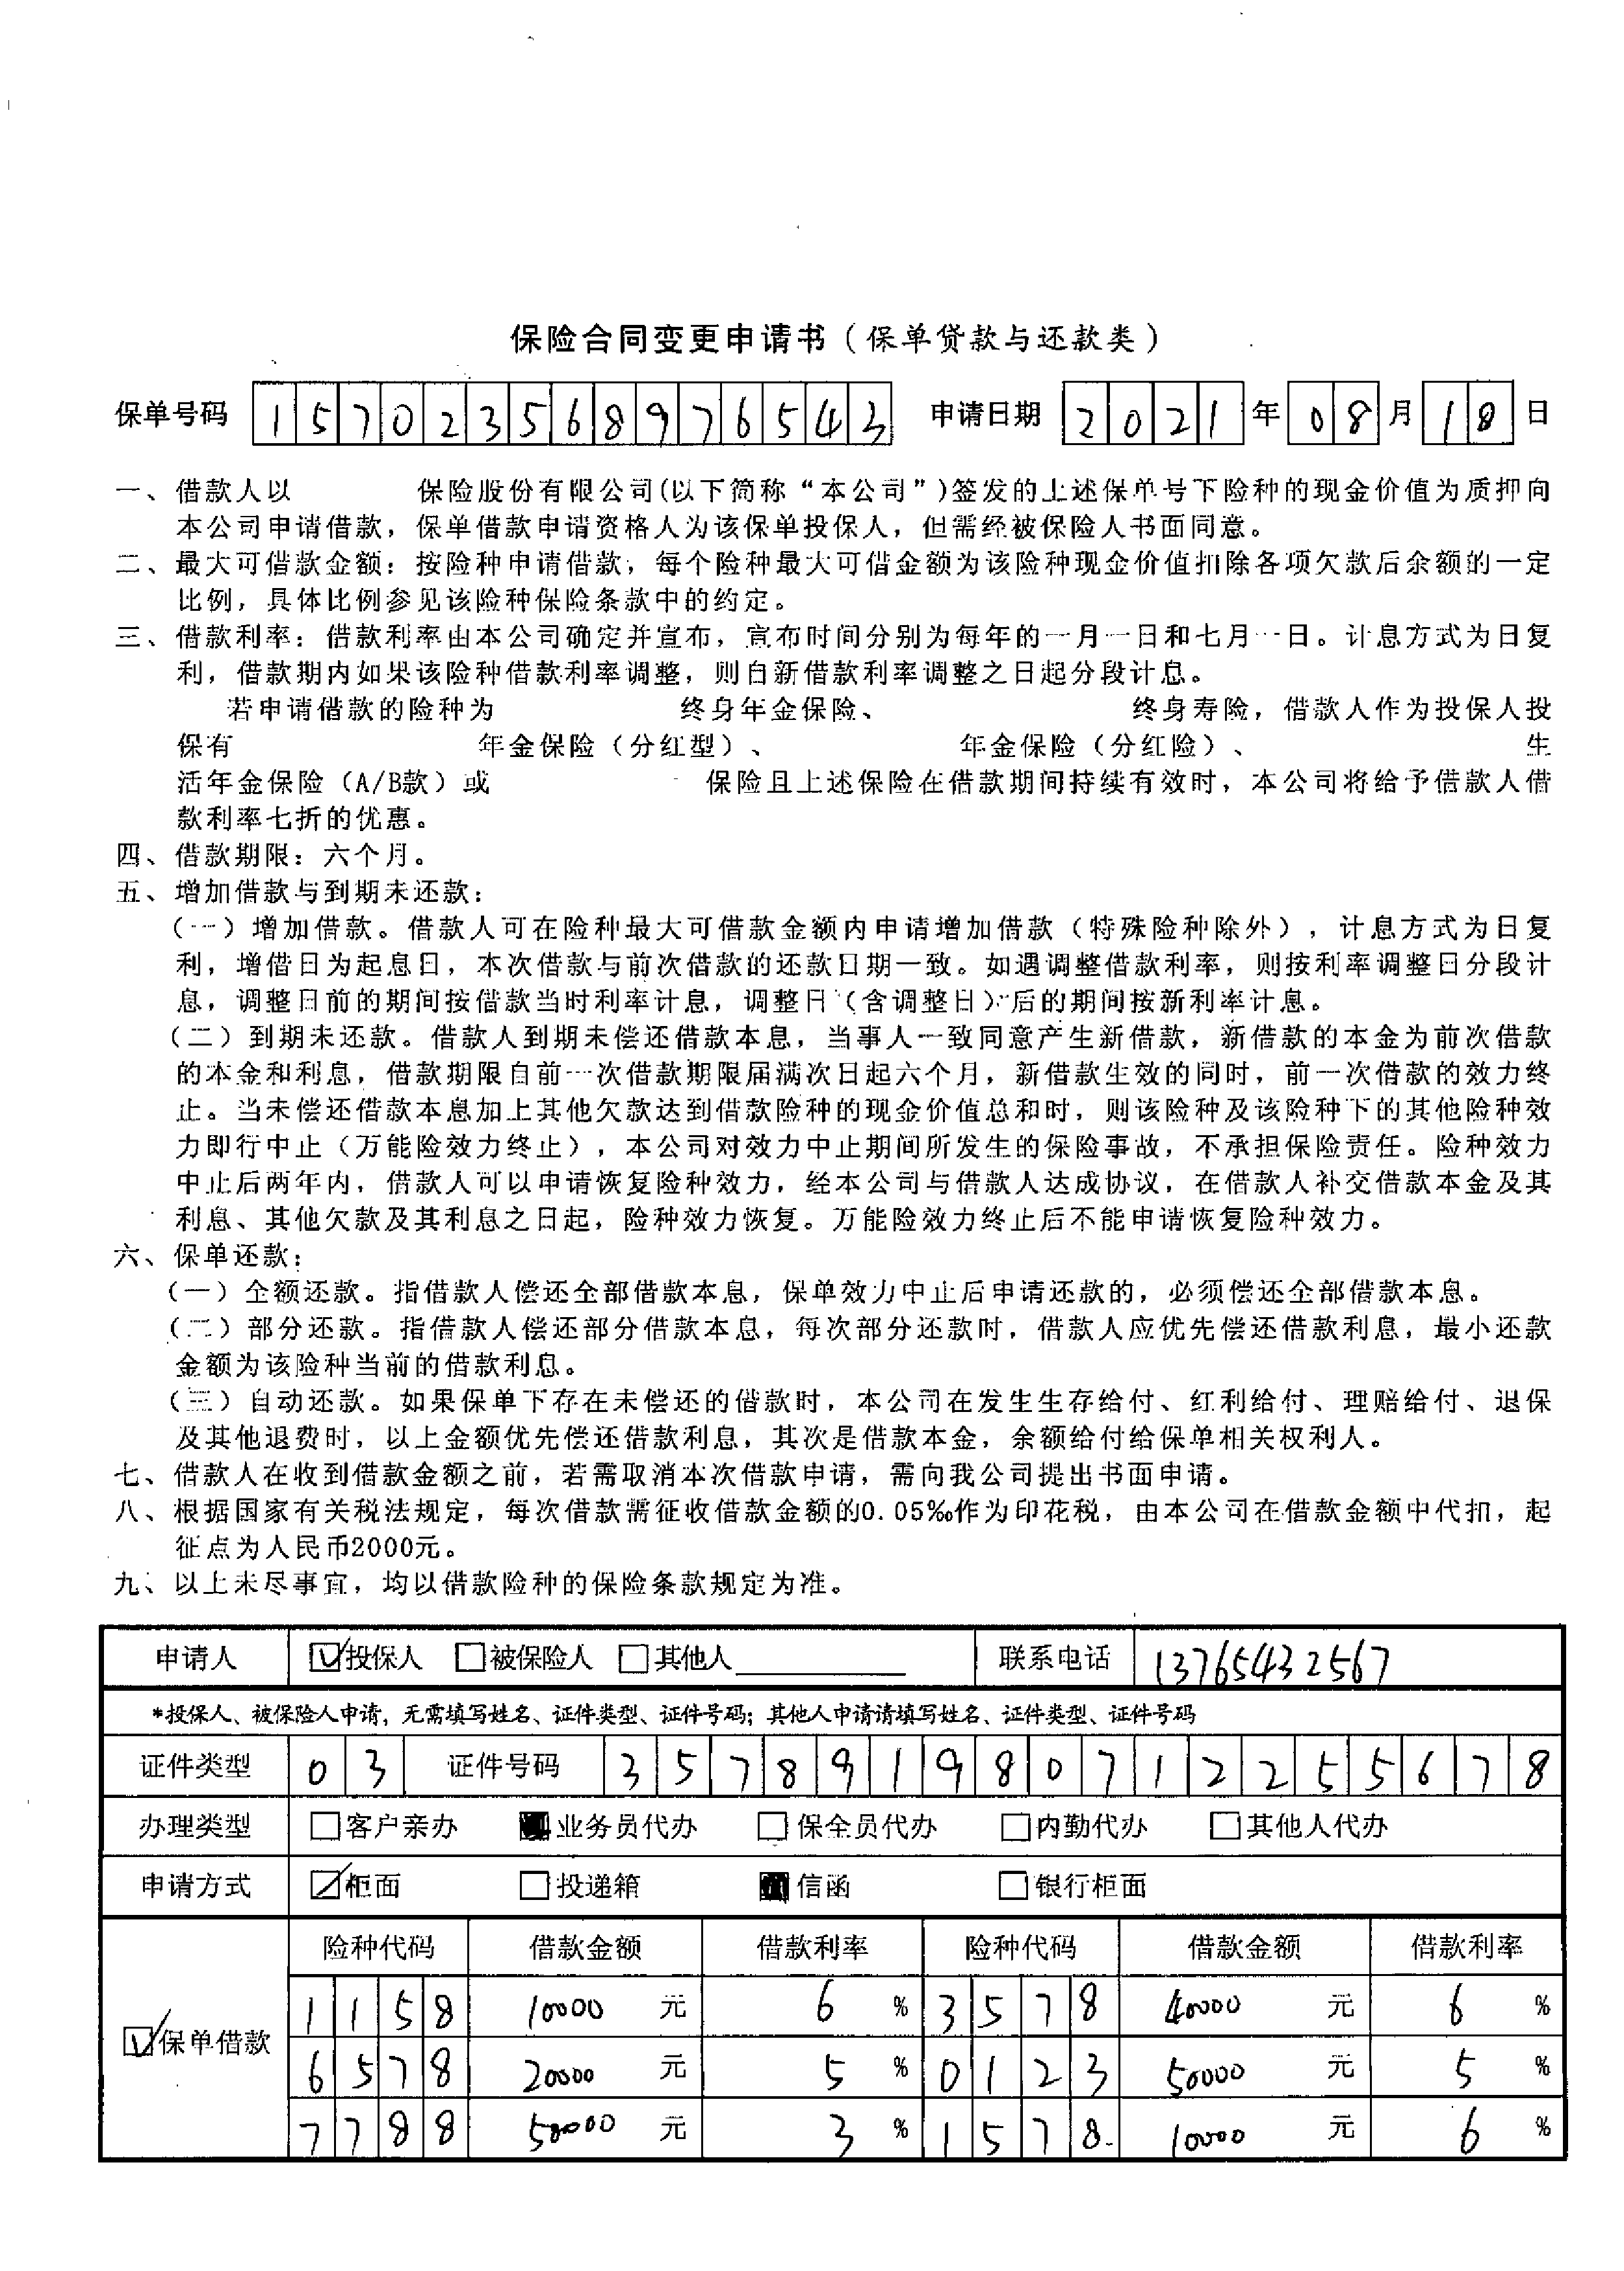 保险合同变更申请书（保单贷款与还款类）
保单号码 157023568976543 申请日期 2021 年 08 月 18 日
一、借款人以 保险股份有限公司(以下简称“本公司”)签发的上述保单号下险种的现金价值为质押向
本公司申请借款，保单借款申请资格人为该保单投保人，但需经被保险人书面同意。
二、最大可借款金额：按险种申请借款，每个险种最大可借金额为该险种现金价值扣除各项欠款后余额的一定
比例，具体比例参见该险种保险条款中的约定。
三、借款利率：借款利率由本公司确定并宣布，宣布时间分别为每年的一月一日和七月一日。计息方式为日复
利，借款期内如果该险种借款利率调整，则自新借款利率调整之日起分段计息。
若申请借款的险种为 终身年金保险、 终身寿险，借款人作为投保人投
保有 年金保险（分红型）、 年金保险（分红险）、 生
活年金保险（A/B款）或 保险且上述保险在借款期间持续有效时，本公司将给予借款人借
款利率七折的优惠。
四、借款期限：六个月。
五、增加借款与到期未还款：
（一）增加借款。借款人可在险种最大可借款金额内申请增加借款（特殊险种除外），计息方式为日复
利，增借日为起息日，本次借款与前次借款的还款日期一致。如遇调整借款利率，则按利率调整日分段计
息，调整日前的期间按借款当时利率计息，调整日（含调整日）后的期间按新利率计息。
（二）到期未还款。借款人到期未偿还借款本息，当事人一致同意产生新借款，新借款的本金为前次借款
的本金和利息，借款期限自前一次借款期限届满次日起六个月，新借款生效的同时，前一次借款的效力终
止。当未偿还借款本息加上其他欠款达到借款险种的现金价值总和时，则该险种及该险种下的其他险种效
力即行中止（万能险效力终止），本公司对效力中止期间所发生的保险事故，不承担保险责任。险种效力
中止后两年内，借款人可以申请恢复险种效力，经本公司与借款人达成协议，在借款人补交借款本金及其
利息、其他欠款及其利息之日起，险种效力恢复。万能险效力终止后不能申请恢复险种效力。
六、保单还款：
（一）全额还款。指借款人偿还全部借款本息，保单效力中止后申请还款的，必须偿还全部借款本息。
（二）部分还款。指借款人偿还部分借款本息，每次部分还款时，借款人应优先偿还借款利息，最小还款
金额为该险种当前的借款利息。
（三）自动还款。如果保单下存在未偿还的借款时，本公司在发生生存给付、红利给付、理赔给付、退保
及其他退费时，以上金额优先偿还借款利息，其次是借款本金，余额给付给保单相关权利人。
七、借款人在收到借款金额之前，若需取消本次借款申请，需向我公司提出书面申请。
八、根据国家有关税法规定，每次借款需征收借款金额的0.05‰作为印花税，由本公司在借款金额中代扣，起
征点为人民币2000元。
九、以上未尽事宜，均以借款险种的保险条款规定为准。
申请人 ☑投保人 □被保险人 □其他人 联系电话 13765432567
*投保人、被保险人申请，无需填写姓名、证件类型、证件号码；其他人申请请填写姓名、证件类型、证件号码
证件类型 03 证件号码 357891980712255678
办理类型 □客户亲办 ■业务员代办 □保全员代办 □内勤代办 □其他人代办
申请方式 ☑柜面 □投递箱 ■信函 □银行柜面
险种代码 借款金额 借款利率 险种代码 借款金额 借款利率
1158 10000 元 6 % 3578 40000 元 6 %
☑保单借款
6578 20000 元 5 % 0123 50000 元 5 %
7788 50000 元 3 % 1578 10000 元 6 %